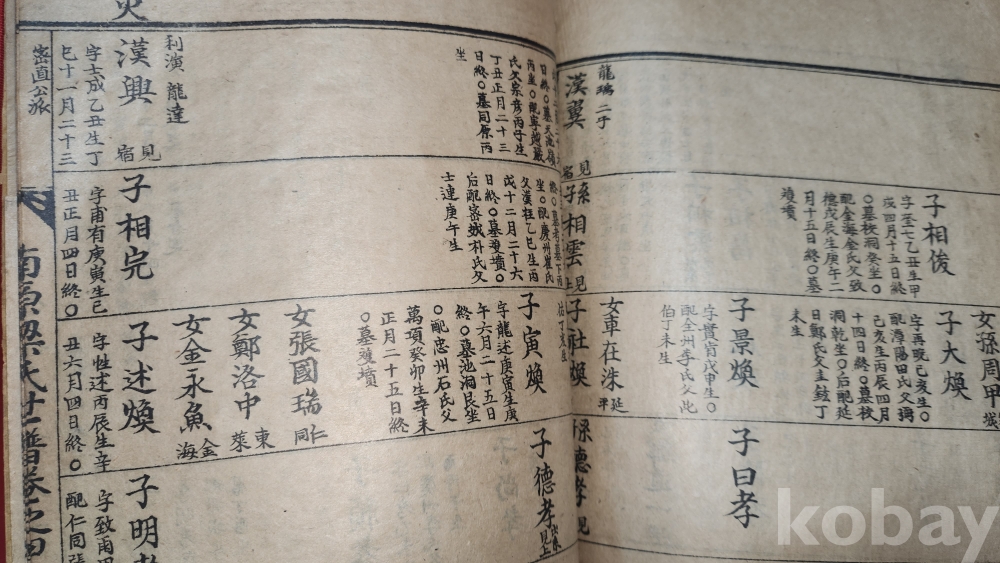 子相俊
字至七乙丑生甲
戌四月十五日終
○墓枝洞癸坐○
配金海金氏父致
德戊辰生庚午二
月十五日終○墓
雙墳
女孫周甲
子大煥
字再晩己亥生○
配潭陽田氏父
己亥生丙辰四月
十四日終○墓枝
洞乾坐○后配延
日鄭氏父圭鉉丁
未生
龍瑞 二于
漢翼
見
孫
子相雲
見
子景煥
字賛肯戊申生○
配全州李氏父此
伯丁未生
女車在洙
延
子社煥
子曰孝
德孝
見
日終○墓天
丙坐○配
氏父宗彦丙子生
丁丑正月二十三
日終○墓同原丙
坐
坐○配慶州崔氏
父漢柱乙巳生丙
戌十二月二十六
日終○墓雙墳○
后配密城朴氏父
士連庚午生
子寅煥
字龍述庚寅生庚
午六月二十五日
終○墓池洞艮坐
○配忠州石氏父
萬項癸卯生辛未
正月二十五日終
○墓雙墳
女張國瑞
仁同
女鄭洛中
東萊
女金永魚
金海
子德孝
見上
利演 龍達
漢興
見
宿
字士成乙丑生丁
巳十一月二十三
子相完
字甫有庚寅生己
丑正月四日終○
子述煥
字性述丙辰生辛
丑六月四日終○
子明孝
字致雨
配仁同張
密直公派
南原梁氏世譜卷之四